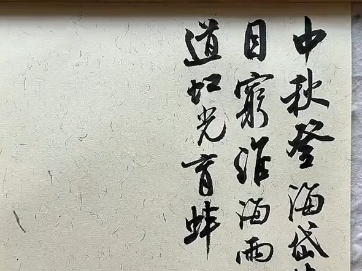 中秋登海岱
目穷淮海两
道虹光育蚌